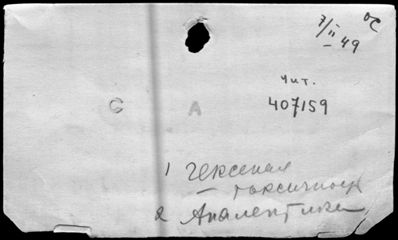 7/II
– 49
чит.
407159
С А
1 гексенал
– токсичность
2 Аналептики